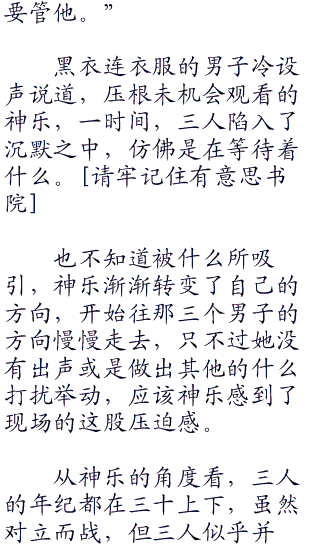 要管他。”
黑衣连衣服的男子冷设
声说道，压根未机会观看的
神乐，一时间，三人陷入了
沉默之中，仿佛是在等待着
什么。[请牢记住有意思书
院]
也不知道被什么所吸
引，神乐渐渐转变了自己的
方向，开始往那三个男子的
方向慢慢走去，只不过她没
有出声或是做出其他的什么
打扰举动，应该神乐感到了
现场的这股压迫感。
从神乐的角度看，三人
的年纪都在三十上下，虽然
对立而战，但三人似乎并